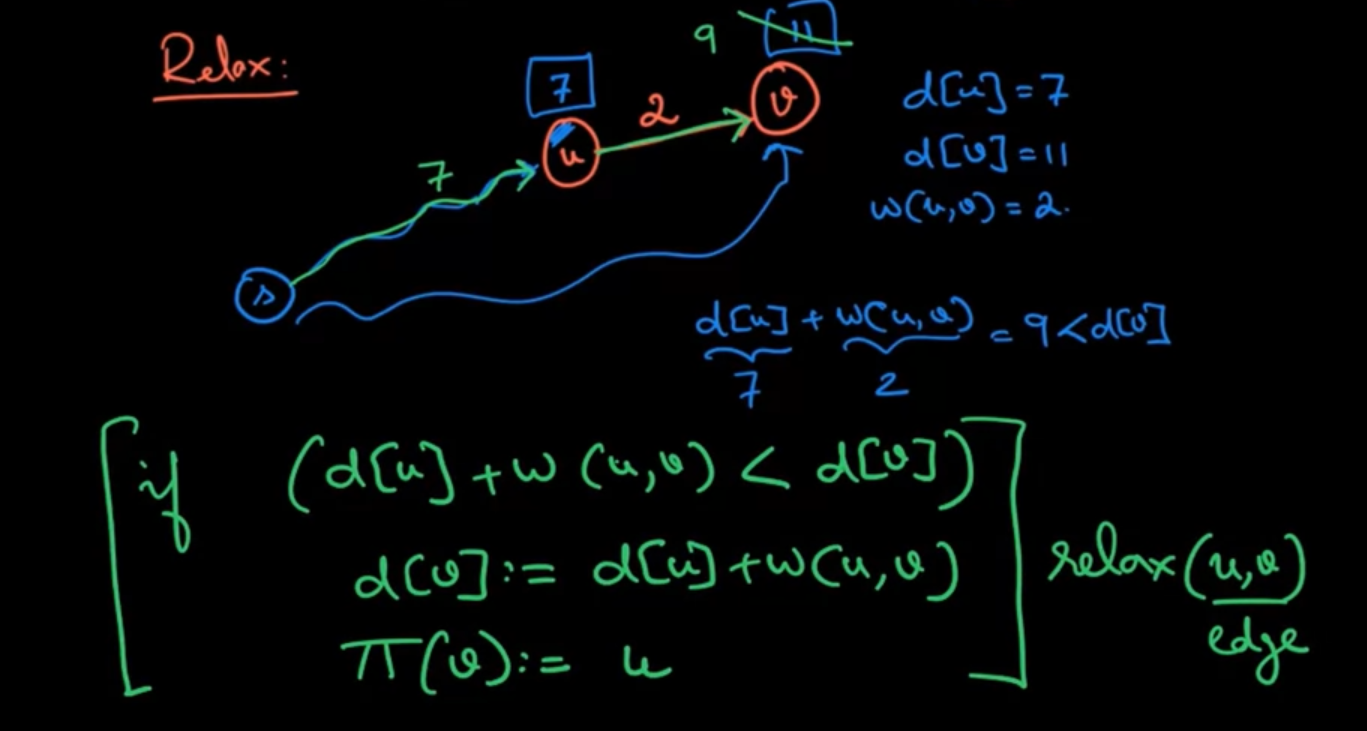 Relax:
9 11
7
2
u
v
7
s
d[u]=7
d[v]=11
w(u,v)=2.
d[u]+w(u,v)=9<d[v]
7 2
if (d[u]+w(u,v)<d[v])
d[v]:=d[u]+w(u,v)
π(v):=u
relax(u,v)
edge